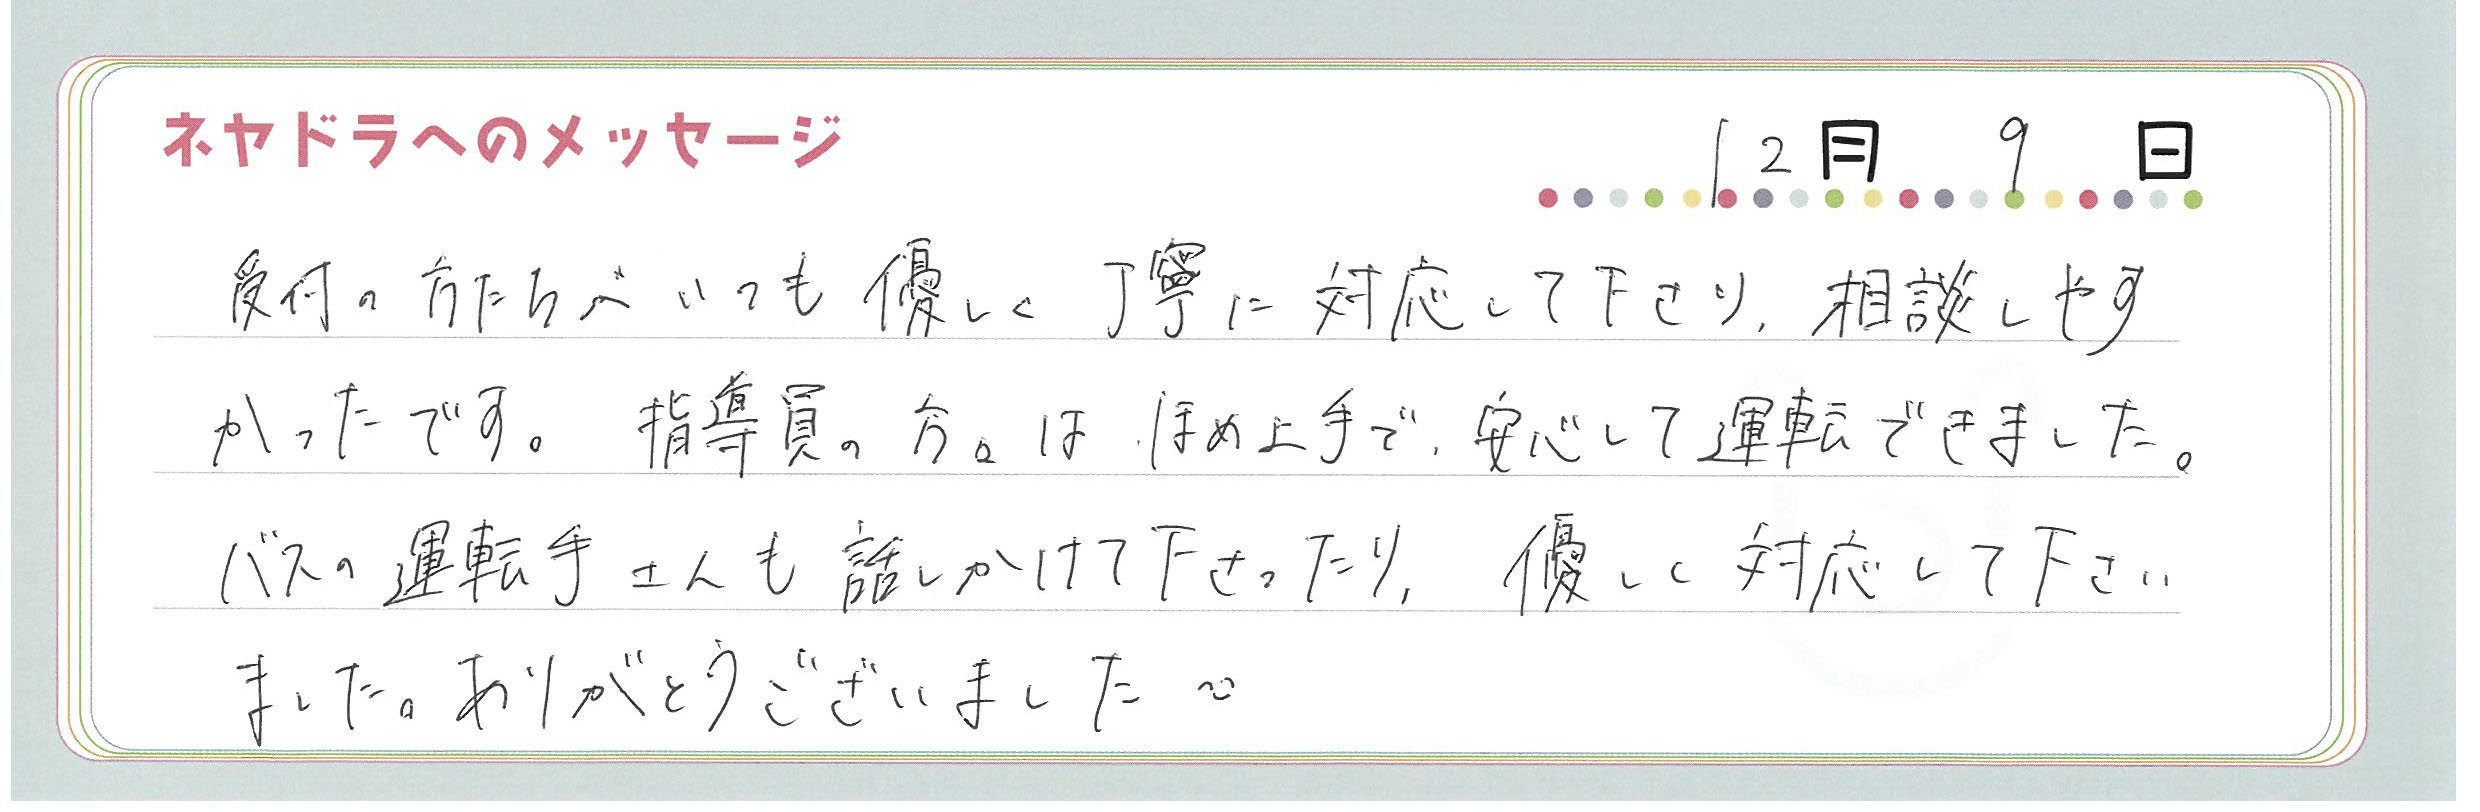 ネヤドラへのメッセージ
12月 9日
受付の方たちがいつも優しく丁寧に対応して下さり、相談しやす
かったです。指導員の方々は、ほめ上手で、安心して運転できました。
バスの運転手さんも話しかけて下さったり、優しく対応して下さい
ました。ありがとうございました